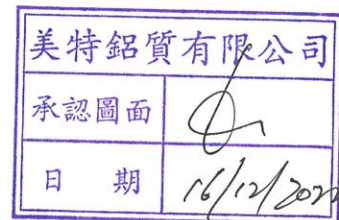 美特鋁質有限公司
承認圖面
日 期 16/12/2021